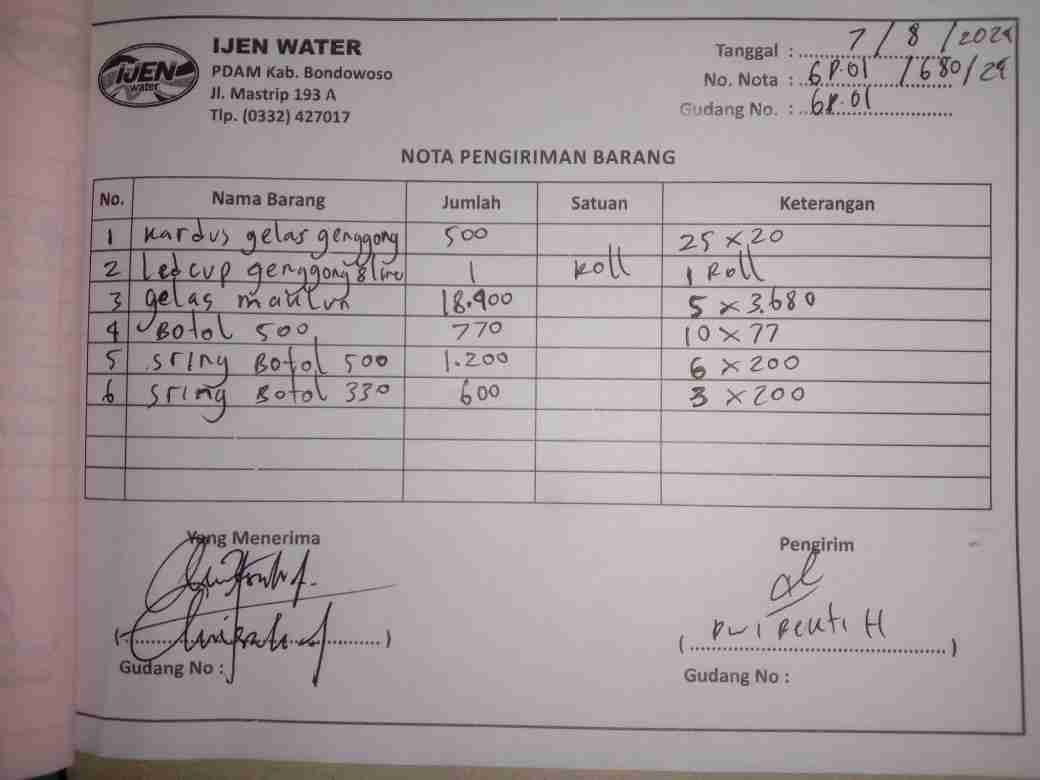 IJEN WATER
PDAM Kab. Bondowoso
Jl. Mastrip 193 A
Tlp. (0332) 427017
IJEN water
Tanggal : 7 / 8 / 2024
No. Nota : GP.01 / 680 / 24
Gudang No. : GP.01
NOTA PENGIRIMAN BARANG
No. Nama Barang Jumlah Satuan Keterangan
1 Kardus gelas genggong 500 25 x 20
2 Led cup genggong 8 line 1 Roll 1 Roll
3 gelas 18.400 5 x 3.680
4 Botol 500 770 10 x 77
5 sring Botol 500 1.200 6 x 200
6 sring Botol 330 600 3 x 200
Yang Menerima Pengirim
Dwi H
Gudang No : Gudang No :